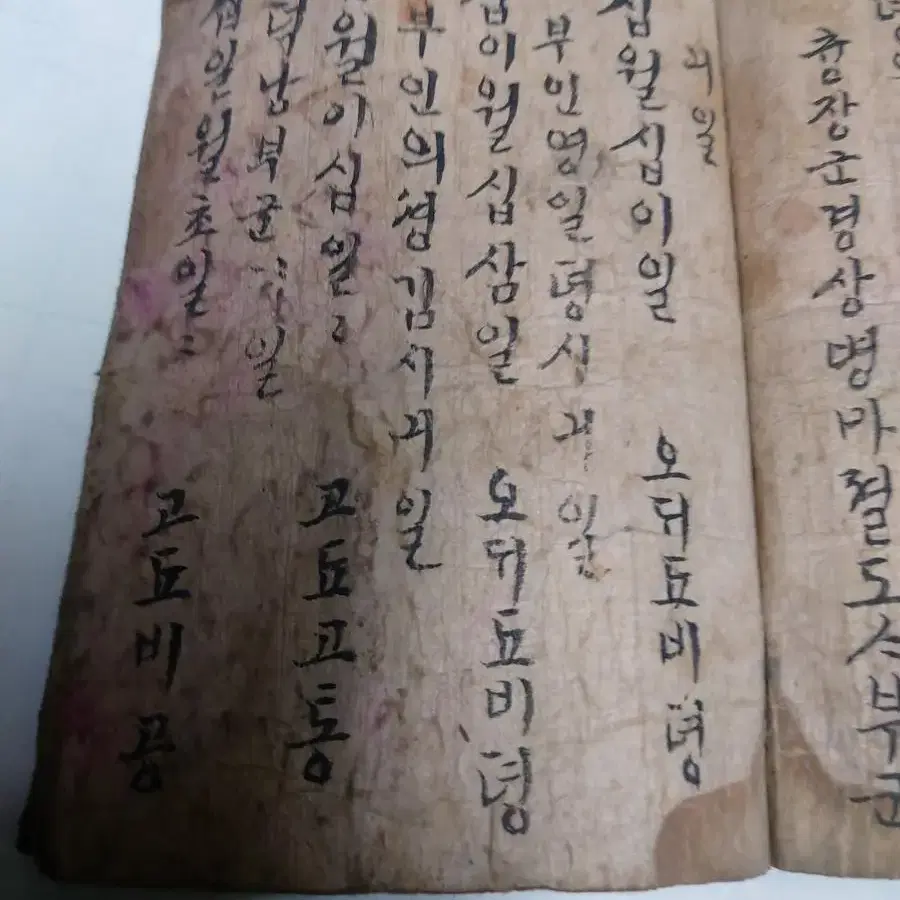 츙장군경상병마졀도스부군
긔일
십월십이일 오뒤됴비뎡
부인영일뎡시긔일
십이월십삼일 오뒤됴비뎡
부인의셩김시긔일
월이십일 고됴고통
남부군긔일
십일월초일 고됴비공